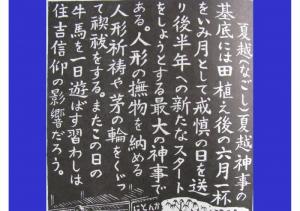 夏越(なごし)(夏越)神事の
基底には田植え後の六月一杯
をいみ月として戒慎の日を送
り後半年への新たなスタート
をしようとする最大の神事で
ある。人形の撫物を納める
人形祈祷や茅の輪をくぐっ
て禊祓をする。またこの日の
牛馬を一日遊ばす習わしは
住吉信仰の影響だろう。